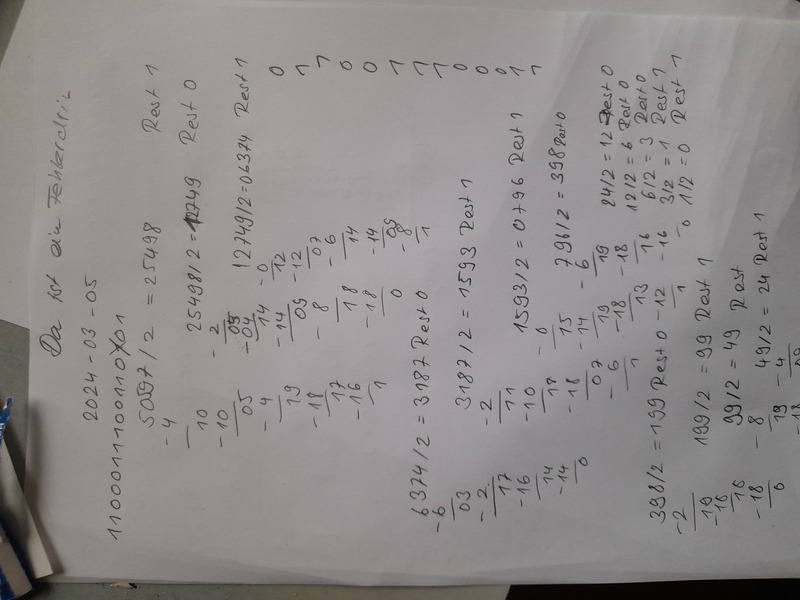 Da ist ein Fehler drin
2024-03-05
110001110011001
50997/2 = 25498 Rest 1
-4
10
-10
05
-4
19
-18
17
-16
1
25498/2=12749 Rest 0
-2
05
-04
14
-14
09
-8
18
-18
0
12749/2=06374 Rest 1
-0
12
-12
07
-6
14
-14
09
-8
1
0
1
1
0
0
1
1
1
0
0
0
1
1
6374/2=3187 Rest 0
-6
03
-2
17
-16
14
-14
0
3187/2=1593 Rest 1
-2
11
-10
18
-18
07
-6
1
1593/2=0796 Rest 1
-0
15
-14
19
-18
13
-12
1
796/2=398 Rest 0
-6
19
-18
16
-16
0
398/2=199 Rest 0
-2
19
-18
18
-18
0
199/2=99 Rest 1
99/2=49 Rest
-8
19
-18
49/2=24 Rest 1
-4
09
24/2=12 Rest 0
12/2=6 Rest 0
6/2=3 Rest 0
3/2=1 Rest 1
1/2=0 Rest 1